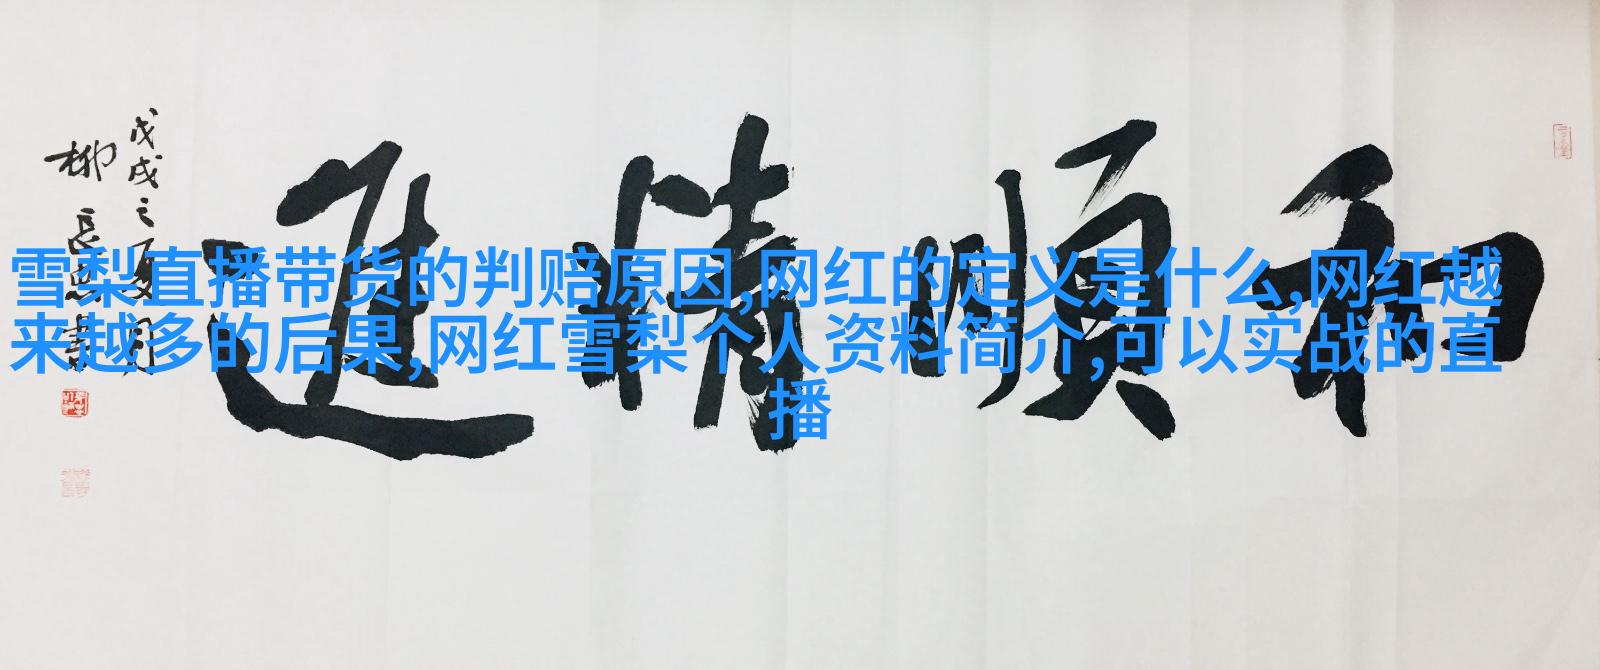 雪梨直播带货的判赔原因,网红的定义是什么,网红越
来越多的后果,网红雪梨个人资料简介,可以实战的直
播
和順進
戊戌之夏
柳長忠書